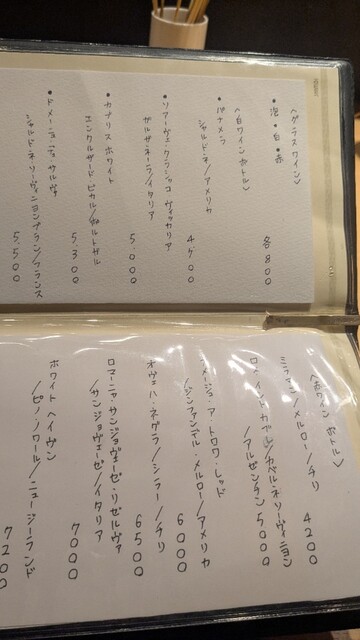 〈グラスワイン〉
・泡・白・赤
各800
〈白ワイン ボトル〉
・パナメラ
シャルドネ/アメリカ
4500
・ソアーヴェ・クラシッコ ヴィッカリア
ガルガネーラ/イタリア
5.000
・カブリス ホワイト
エンクルザード・ビカル/ポルトガル
5.300
・ドメーニュ・ディ・サルヴ
シャルドネ・ソーヴィニヨンブラン/フランス
5.500
〈赤ワイン ボトル〉
メルロー/チリ
4200
カベルネ・ソーヴィニヨン
/アルゼンチン
5000
アトロワ・レッド
/ジンファンデル・メルロー/アメリカ
6000
オヴェハ・ネグラ/シラー/チリ
6500
ロマーニャ サンジョヴェーゼ・リゼルヴァ
/サンジョヴェーゼ/イタリア
7000
ホワイト ヘイヴン
/ピノ・ノワール/ニュージーランド
7200